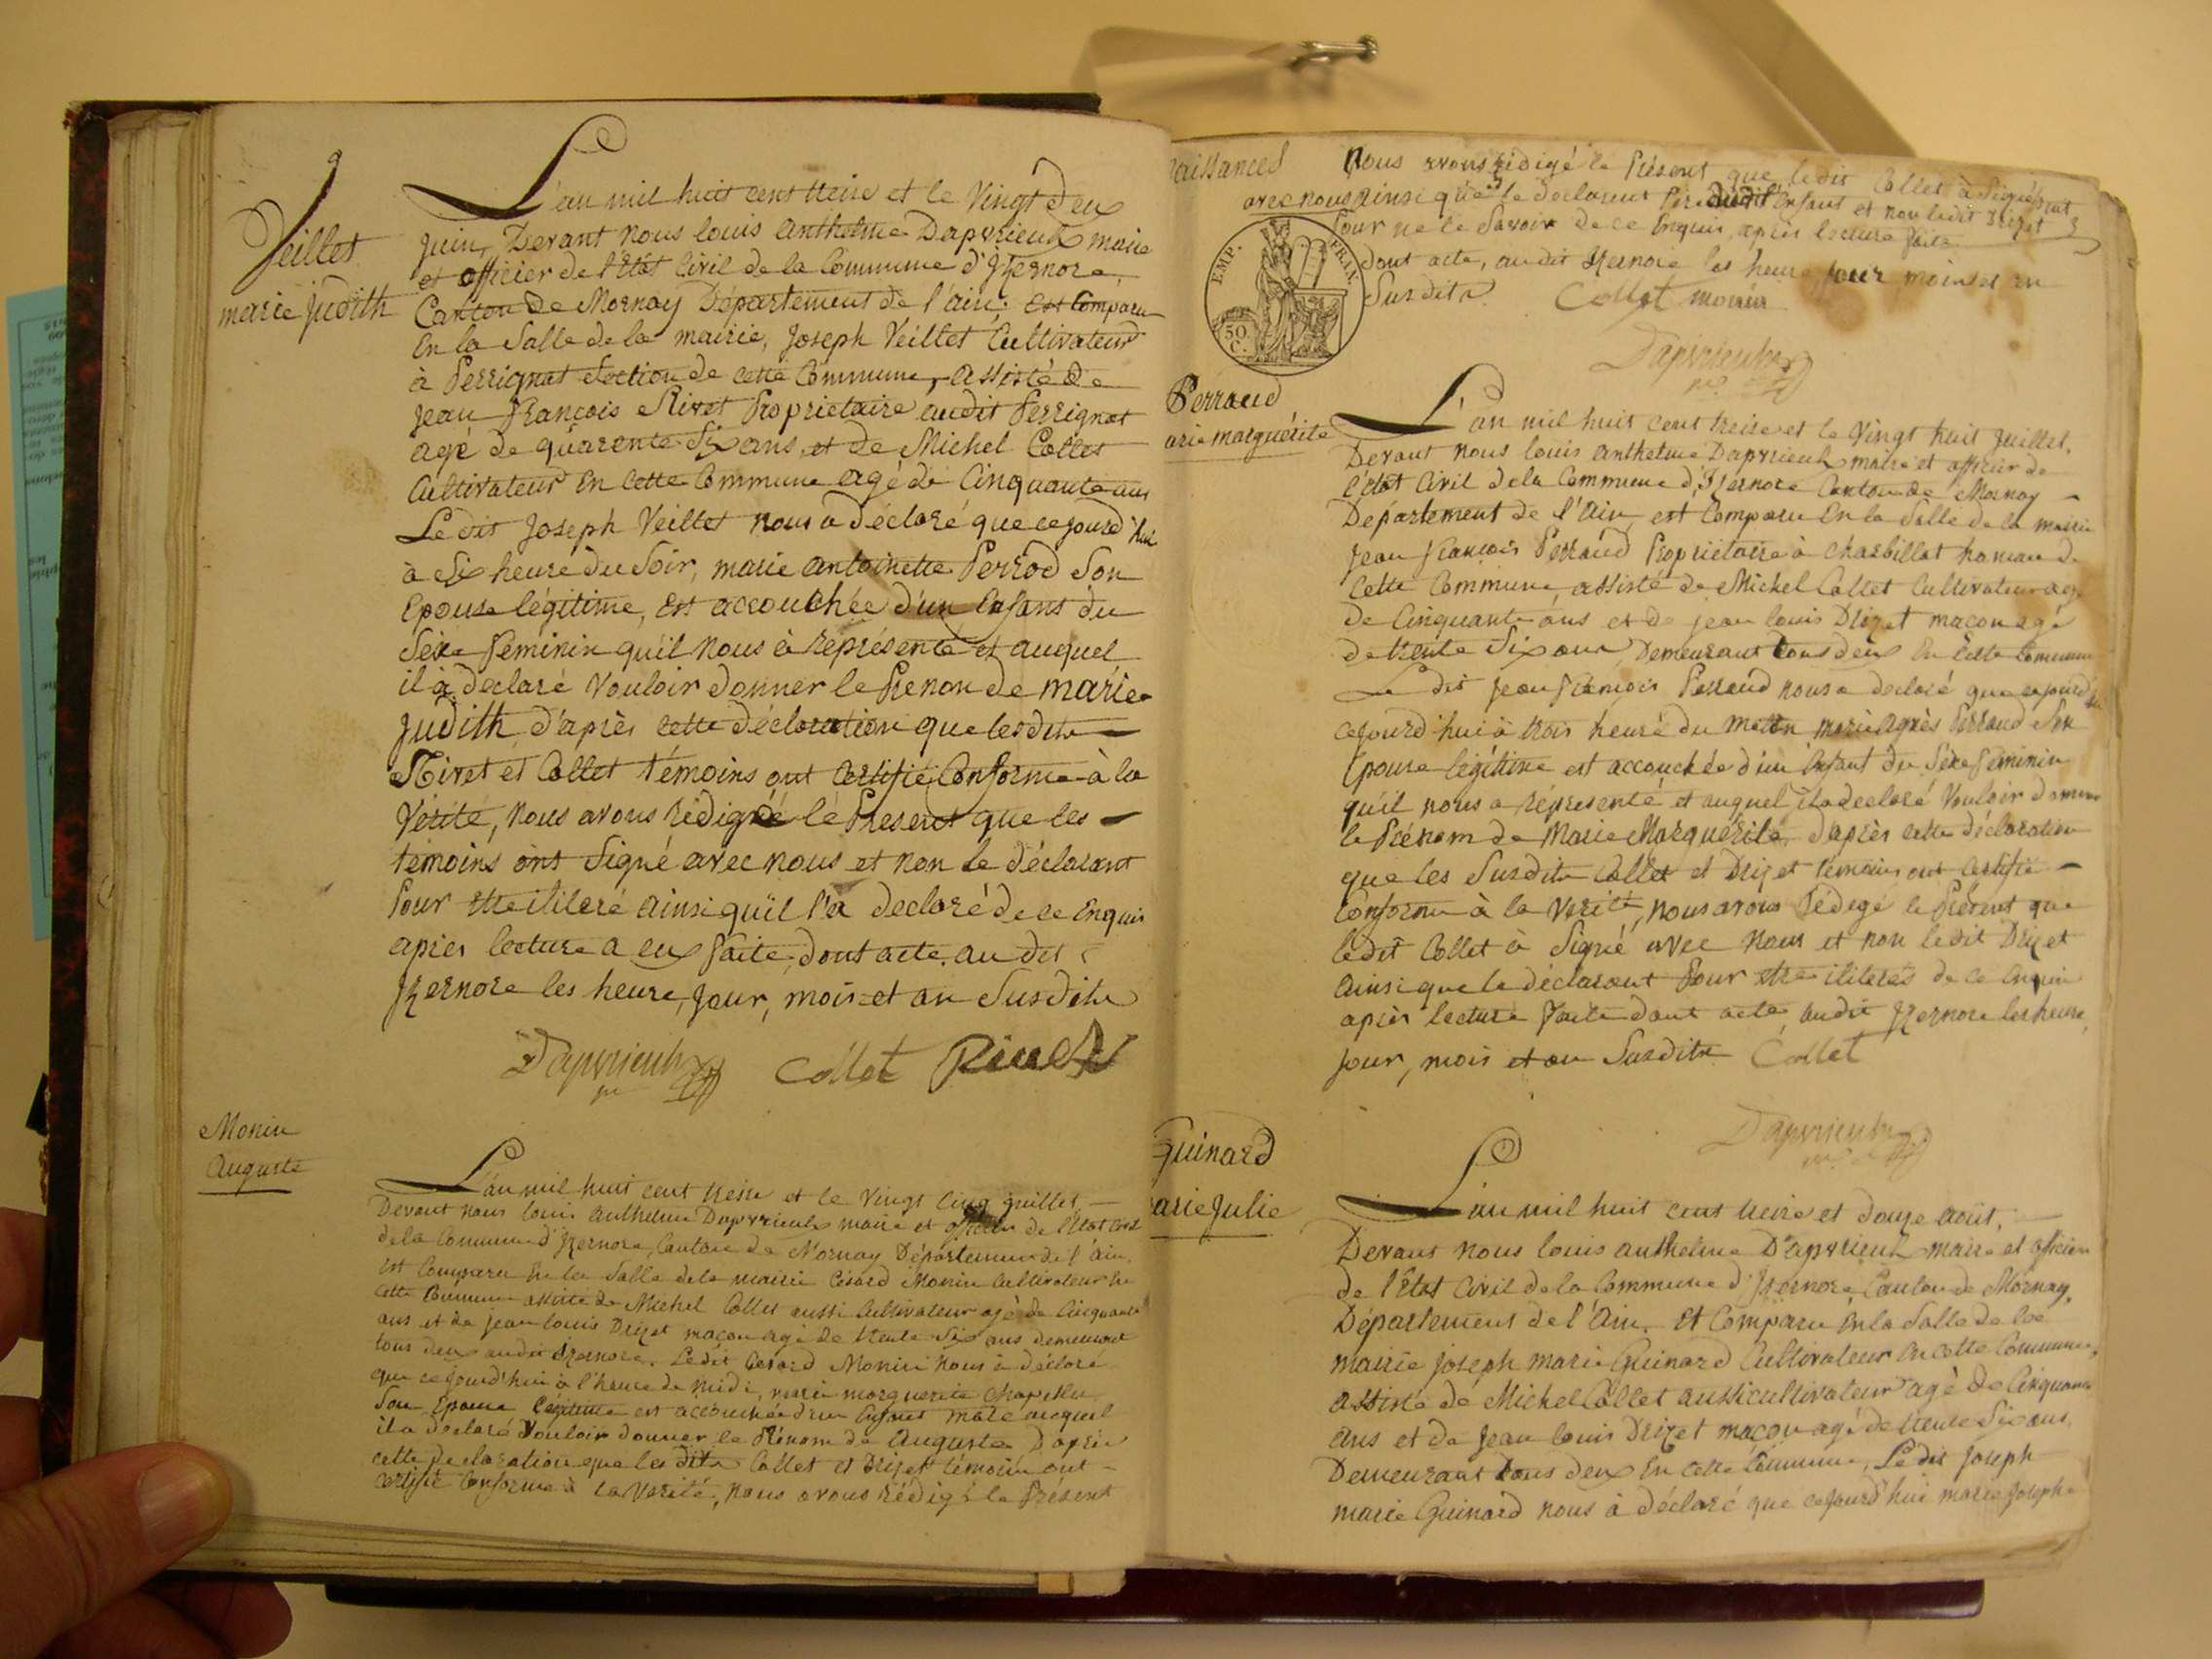 Veillet
marie Judith
L'an mil huit cent treize et le Vingt deux
juin, Devant nous louis anthelme Dapvrieux maire
et officier de l'état Civil de la Commune d'Izernore
Canton de Mornay Département de l'ain. Est Comparu
En la Salle de la mairie, Joseph Veillet Cultivateur
à Perrignat Section de cette Commune, assisté de
Jean François Rivet Proprietaire audit Perrignat
agé de quarente Six ans, et de Michel Collet
Cultivateur En cette Commune agé de Cinquante ans
Le dit Joseph Veillet nous à déclaré que cejourd'hui
à Six heure du Soir, marie antoinette Perrod Son
Epouse légitime, Est accouchée d'un Enfant du
Séxe Féminin qu'il nous à représenté et auquel
il à déclaré Vouloir donner le Prenom de marie
Judith, d'après cette déclaration que lesdits
Rivet et Collet témoins ont Certifié Conforme à la
Vérité, nous avons rédigéé lé Présent que les
témoins ont Signé avec nous et non le déclarant
Pour etre iliteré ainsi qu'il l'a declaré de ce Enquis
après lecture a eux faite, dont acte. au dit
Izernore les heure, Jour, mois et an Susdits
Dapvrieux Collet Rivet
Monin
Auguste
L'an mil huit cent treize et le Vingt Cinq juillet,
Devant nous louis anthelme Dapvrieux maire et officier de l'état Civil
de la Commune d'Izernore, Canton de Mornay Département de l'ain.
Est Comparu En la Salle de la mairie Césard Monin Cultivateur En
cette Commune assisté de Michel Collet aussi Cultivateur agé de Cinquante
ans et de jean louis Drizet maçon agé de trente Six ans demeurant
tous deux audit Izernore. Ledit Cesard Monin nous à déclaré
que ce jourd'hui à l'heure de midi, marie marguerite
Son Epouse légitime est accouchée d'un Enfant male auquel
il a declaré Vouloir donner le Prénom de Auguste D'après
cette declaration que les dits Collet et Drizet témoins ont
certifié Conforme à la Vérité, nous avons rédigé le Présent
naissances
nous avons rédigé le Présent que ledit Collet à Signé
avec nous ainsi que le declarant Père dudit Enfant et non ledit Drizet
Pour ne le Savoir de ce Enquis, après lecture faite
dont acte, audit Izernore les heure, jour, mois et an
Susdits. Collet monin
Dapvrieux
EMP. FRAN.
50 C.
Perraud
arie marguérite
L'an mil huit cent treize et le Vingt huit Juillet,
Devant nous louis anthelme Dapvrieux maire et officier de
l'état Civil de la Commune d'Izernore Canton de Mornay
Département de l'Ain, est Comparu En la Salle de la mairie
Jean François Perraud Propriétaire à Charbillat hameau de
cette Commune, assisté de Michel Collet Cultivateur agé
de Cinquante ans et de jean louis Drizet maçon agé
de trente Six ans, Demeurant tous deux En cette Commune
Le dit Jean François Perraud nous a declaré que cejourd'hui
cejourd'hui à trois heure du matin marie agnès Perraud Son
Epouse légitime est accouchée d'un Enfant du Séxe Féminin
qu'il nous a répresenté et auquel il a declaré Vouloir donner
le Prénom de Marie Marguérite. d'après cette déclaration
que les Susdits Collet et Drizet témoins ont Certifié
Conforme à la Vérité, nous avons Rédigé le Présent que
ledit Collet à Signé avec nous et non ledit Drizet
ainsi que le déclarant Pour etre ilitéres de ce Enquis
après lecture faite dont acte, audit Izernore les heure,
jour, mois et an Susdits Collet
Dapvrieux
Guinard
arie Julie
L'an mil huit cent treize et douze août,
Devant nous louis anthelme Dapvrieux maire et officier
de l'état Civil de la Commune d'Izernore Canton de Mornay,
Département de l'Ain. Est Comparu En la Salle de la
mairie Joseph marie Guinard Cultivateur En cette Commune,
assisté de Michel Collet aussi cultivateur agé de Cinquante
ans et de Jean louis Drizet maçon agé de trente Six ans,
Demeurant tous deux En cette Commune, Ledit Joseph
marie Guinard nous à déclaré que cejourd'hui marie Josephe